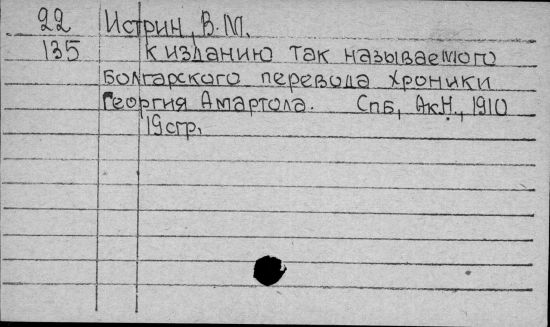 22 Истрин, В.М.
135 К изданию так называемого
Болгарского перевода Хроники
Георгия Амартола. Спб, Ак.Н., 1910
19 стр.